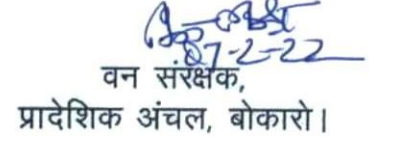 07-2-22
वन संरक्षक,
प्रादेशिक अंचल, बोकारो।